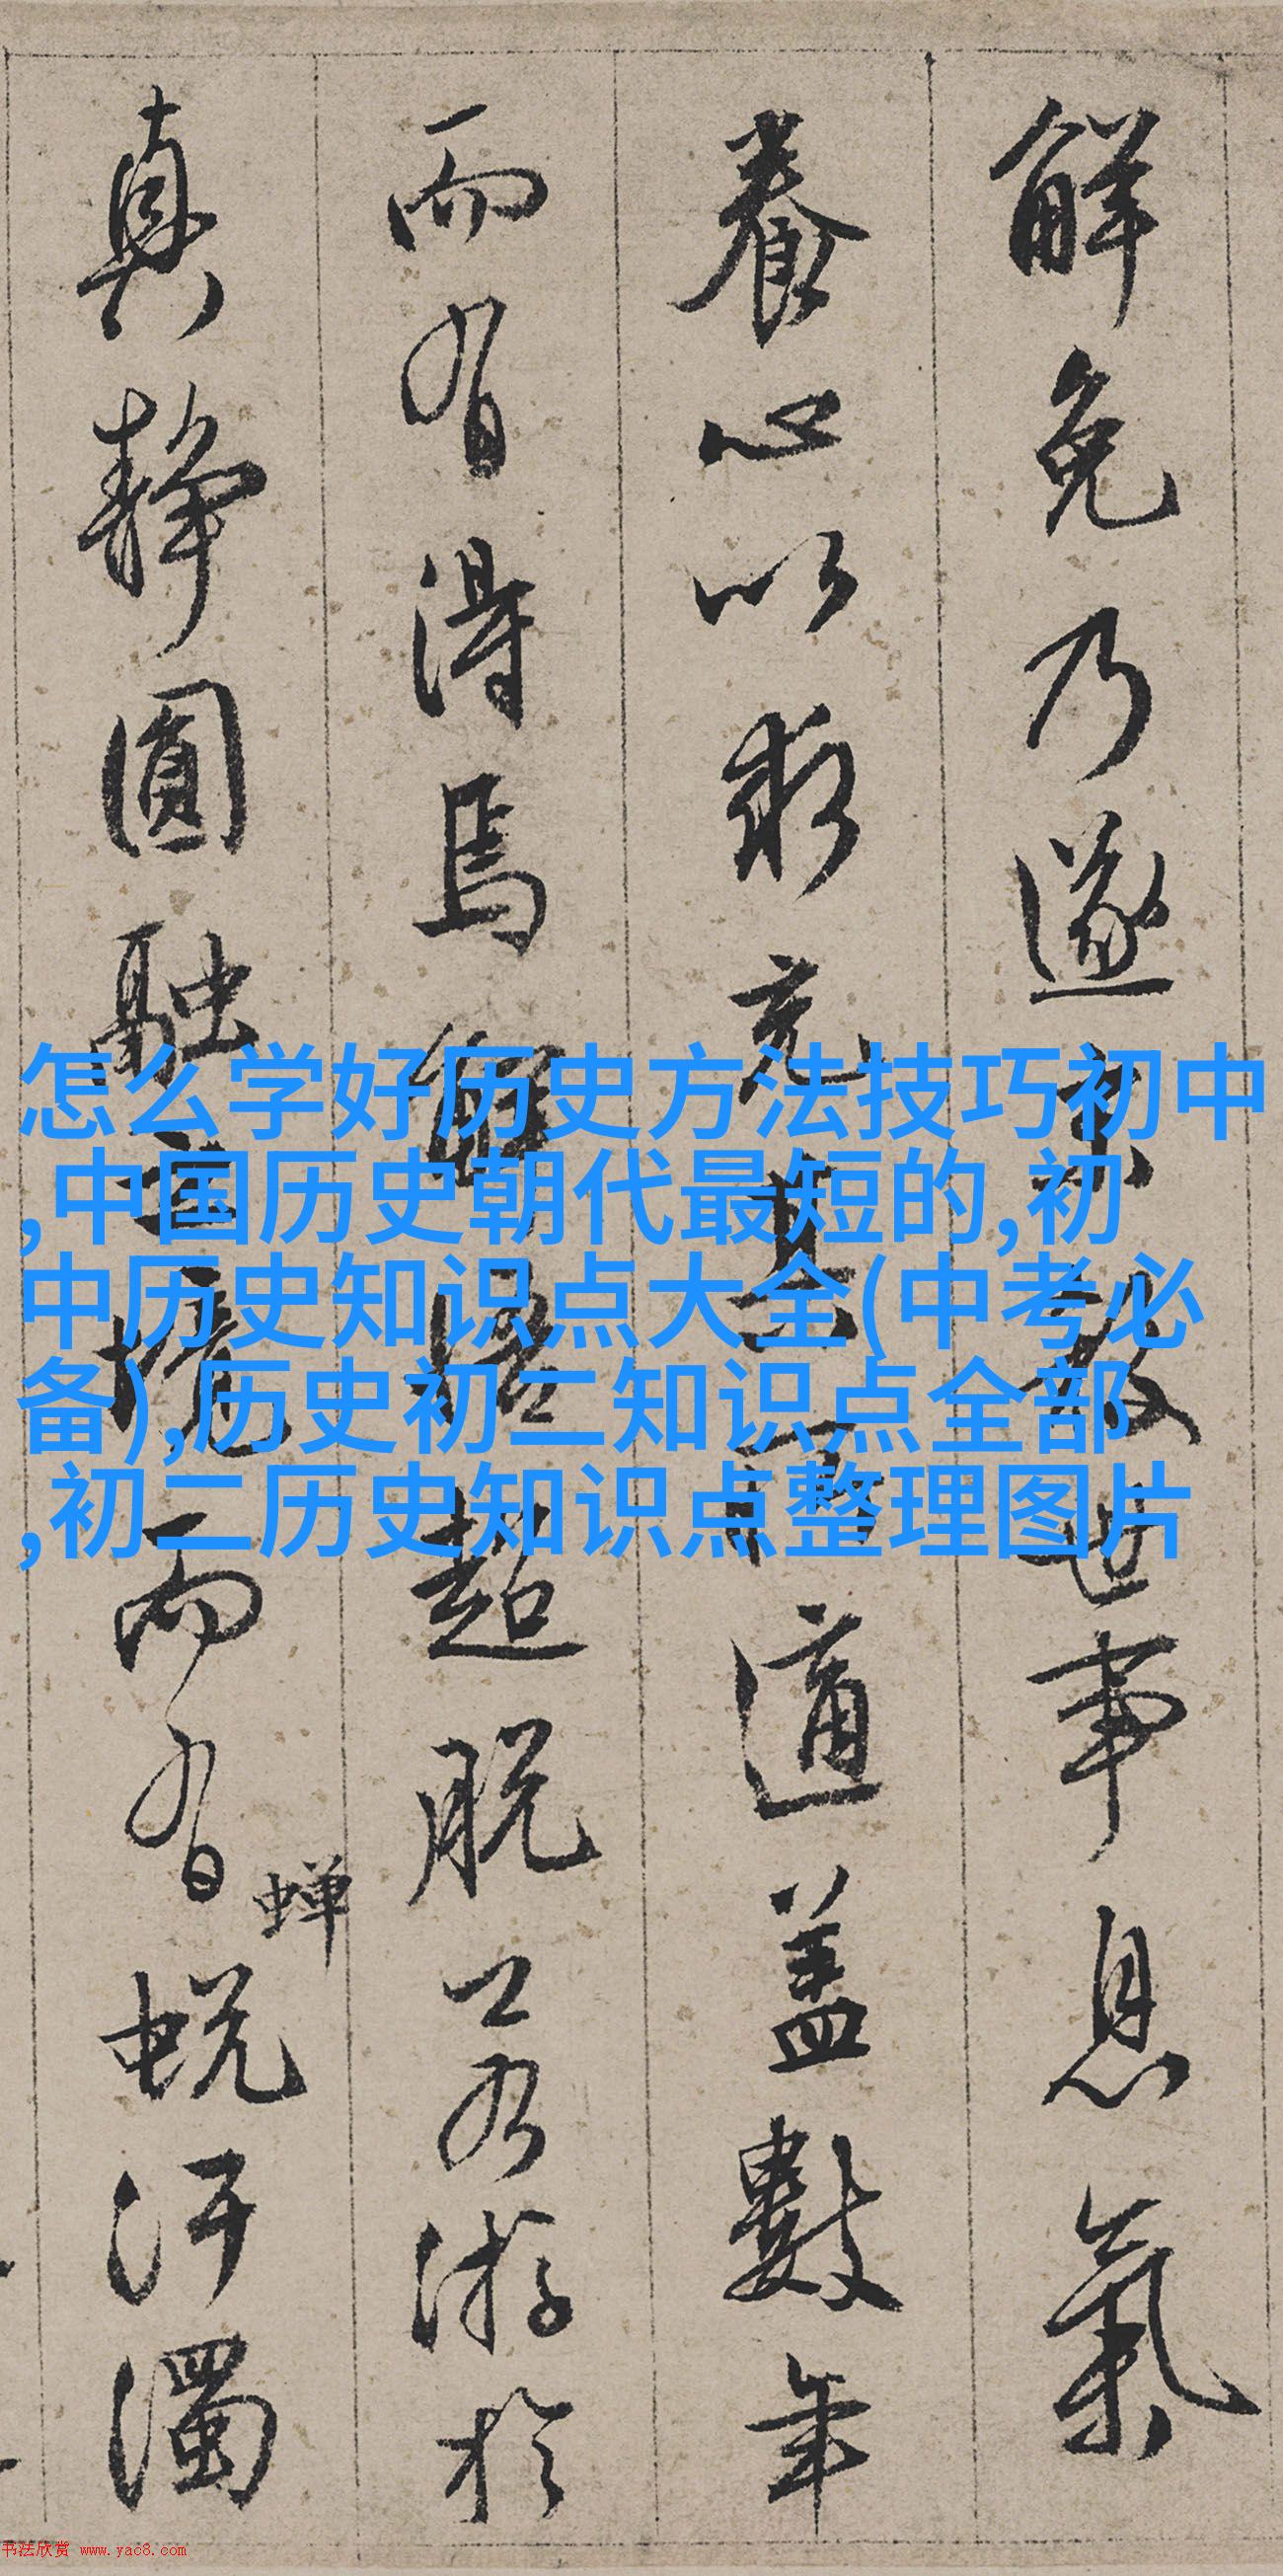 解免乃遂求散世事息氣
養心以求充其一道蓋數年
而有得焉解悟超脫工若游於
真静圓融之境而有蟬蛻汙濁
怎么学好历史方法技巧初中
,中国历史朝代最短的,初
中历史知识点大全(中考必
备),历史初二知识点全部
,初二历史知识点整理图片
书法欣赏 www.yac8.com